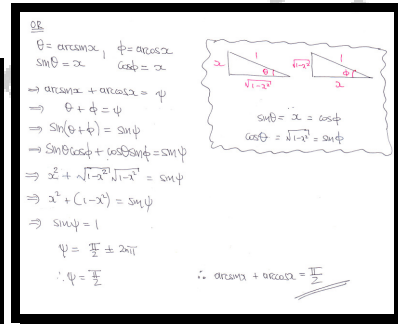 OR
θ = arcsinx, ϕ = arccosx
sinθ = x cosϕ = x
⇒ arcsinx + arccosx = ψ
⇒ θ + ϕ = ψ
⇒ sin(θ+ϕ) = sinψ
⇒ sinθcosϕ + cosθsinϕ = sinψ
⇒ x² + √1-x² √1-x² = sinψ
⇒ x² + (1-x²) = sinψ
⇒ sinψ = 1
ψ = π/2 ± 2nπ
∴ ψ = π/2
x 1 θ √1-x²
√1-x² 1 ϕ x
sinθ = x = cosϕ
cosθ = √1-x² = sinϕ
∴ arcsinx + arccosx = π/2